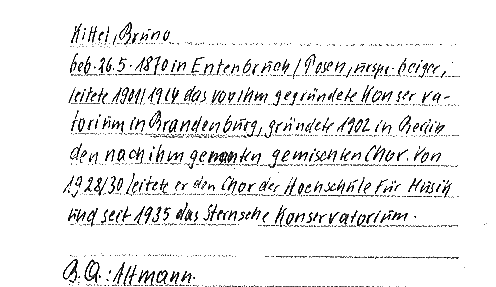 Kittel, Bruno
geb. 26.5.1870 in Entenbruch / Posen, urspr. Geiger,
leitete 1901/1914 das von ihm gegründete Konserva-
torium in Brandenburg, gründete 1902 in Berlin
den nach ihm genannten gemischten Chor. Von
1928/30 leitete er den Chor der Hochschule für Musik
und seit 1935 das Sternsche Konservatorium.
B.Q.: Altmann.